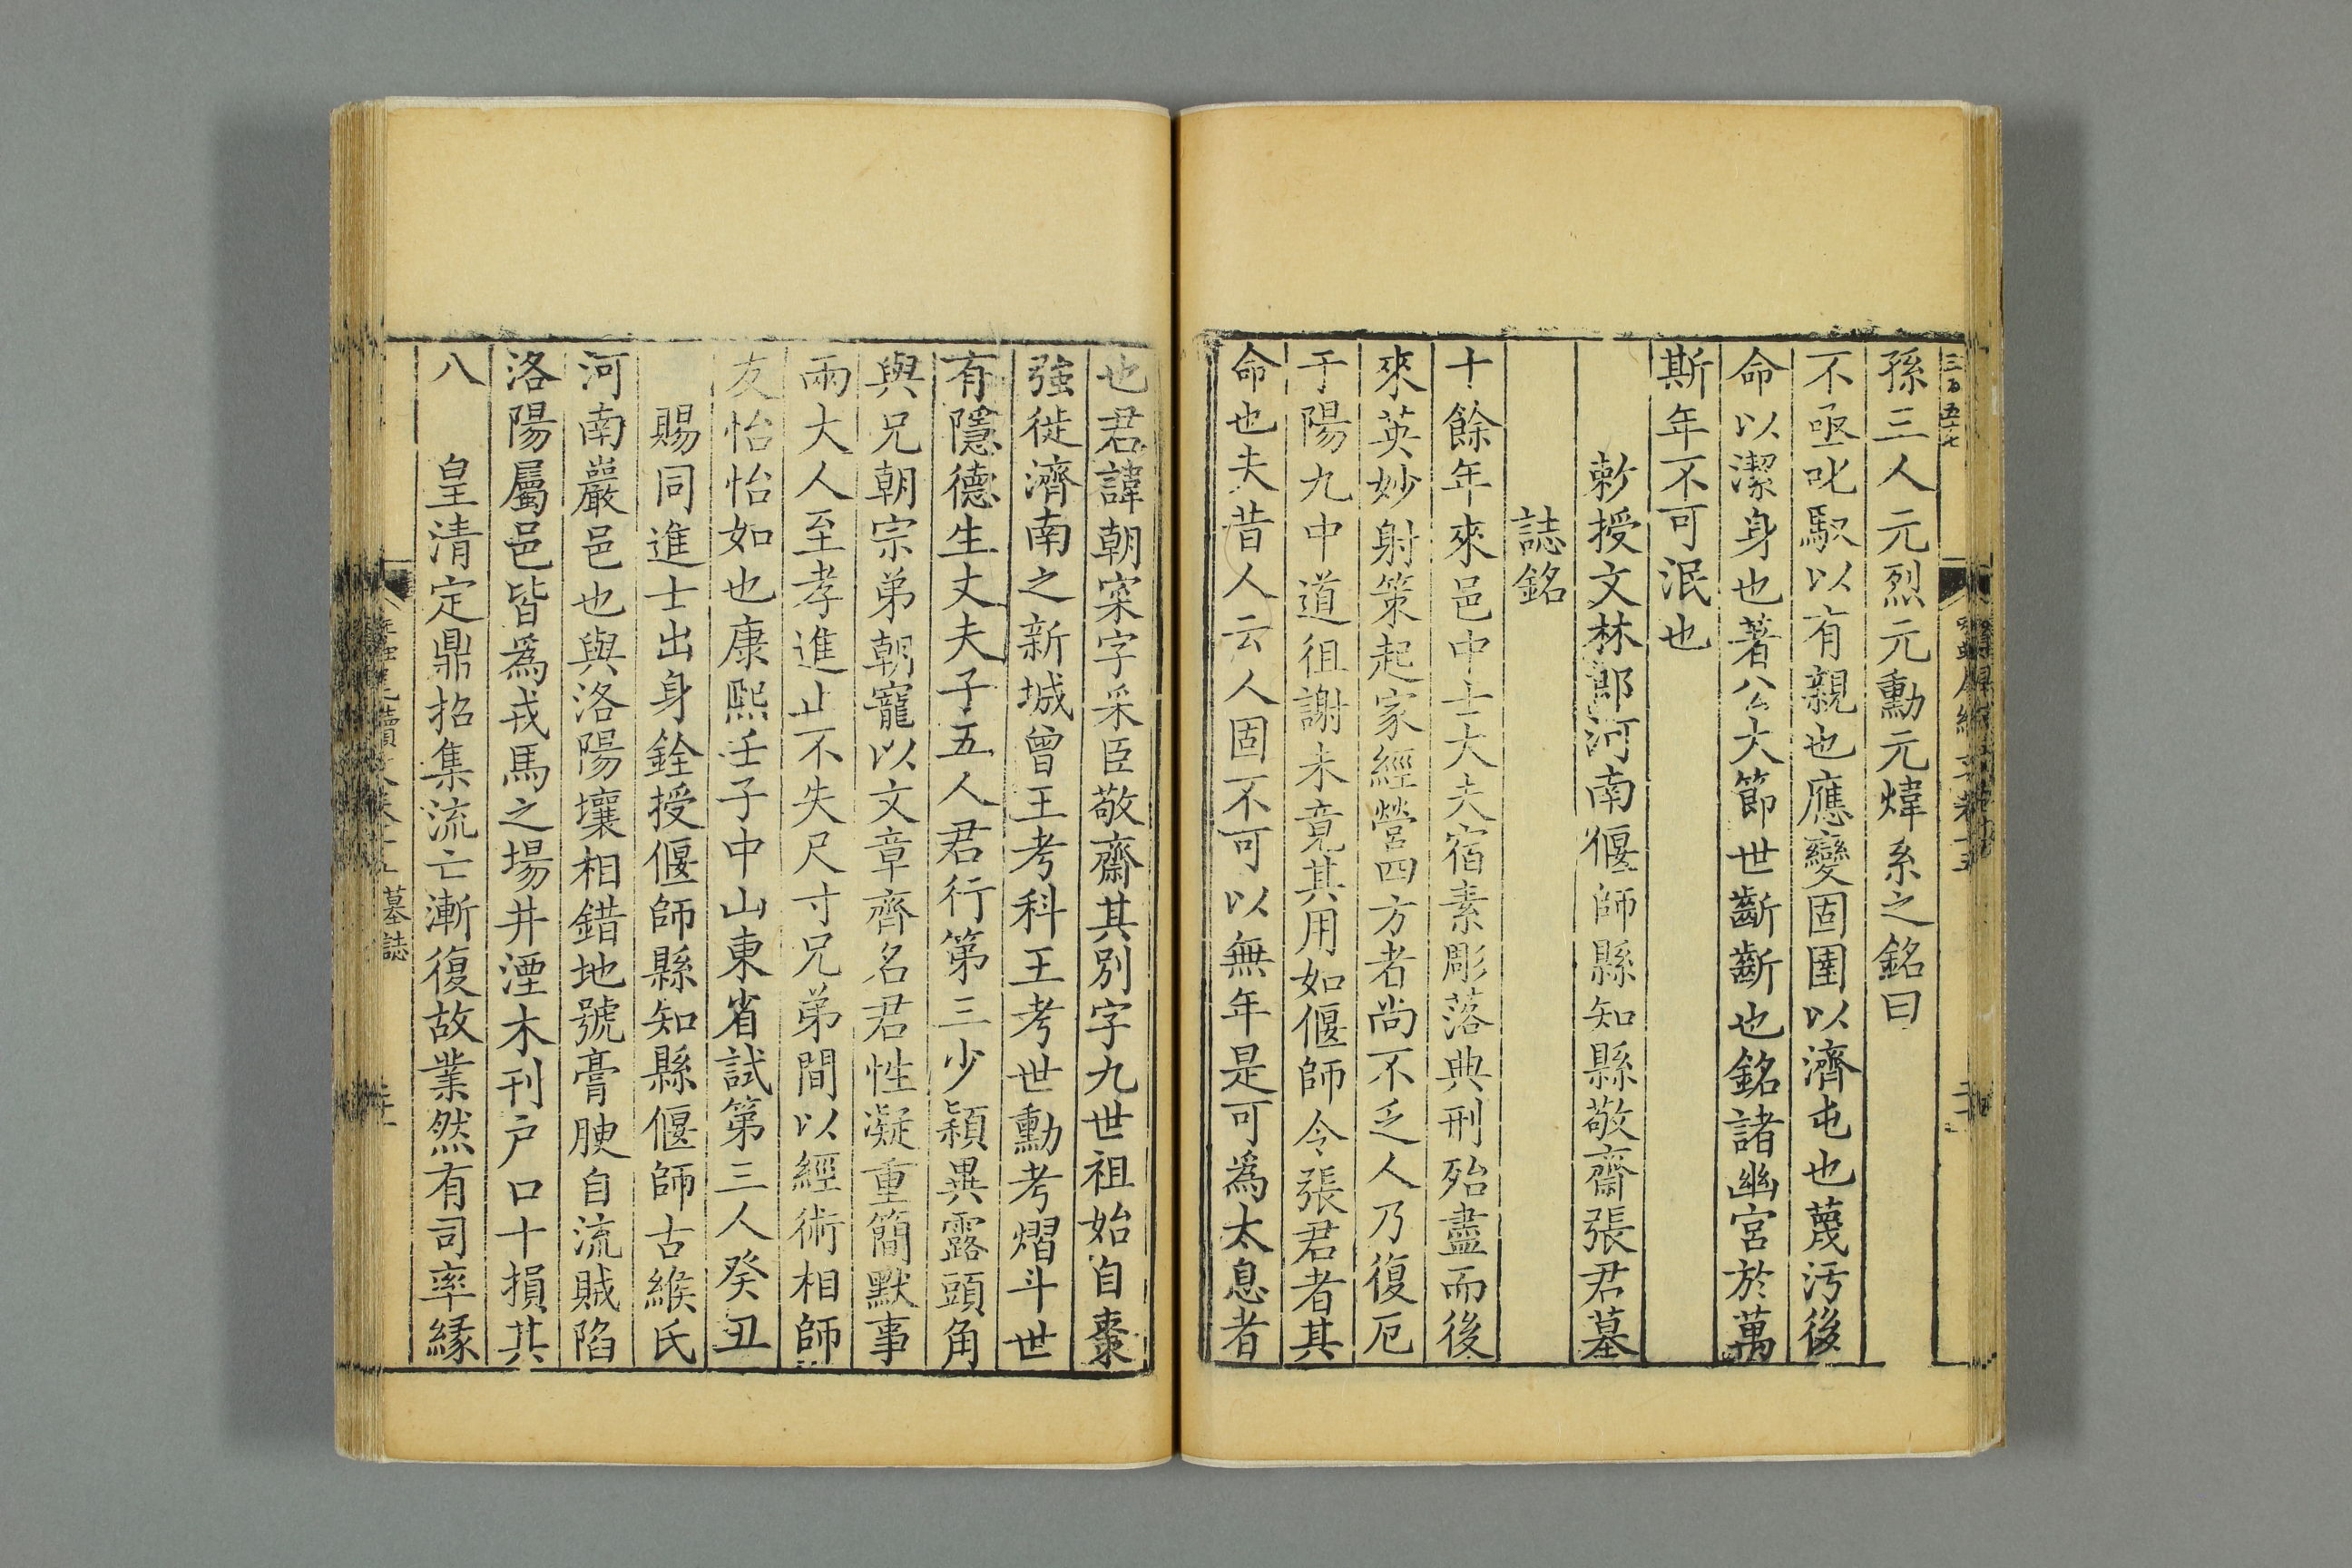 三百五十七
孫三人元烈元勳元煒系之銘曰
不亟叱馭以有親也應變固圉以濟屯也蔑汚後
命以潔身也著公大節世齗齗也銘諸幽宮於萬
斯年不可泯也
勅授文林郎河南偃師縣知縣敬齋張君墓
誌銘
十餘年來邑中士大夫宿素彫落典刑殆盡而後
來英妙射策起家經營四方者尚不乏人乃復厄
于陽九中道徂謝未竟其用如偃師令張君者其
命也夫昔人云人固不可以無年是可爲太息者
也君諱朝寀字采臣敬齋其別字九世祖始自棗
强徙濟南之新城曾王考科王考世勳考熠斗世
有隱德生丈夫子五人君行第三少穎異露頭角
與兄朝宗弟朝寵以文章齊名君性凝重簡默事
兩大人至孝進止不失尺寸兄弟間以經術相師
友怡怡如也康熙壬子中山東省試第三人癸丑
賜同進士出身銓授偃師縣知縣偃師古緱氏
河南巖邑也與洛陽壤相錯地號膏腴自流賊陷
洛陽屬邑皆爲戎馬之場井湮木刊戶口十損其
八
皇清定鼎招集流亡漸復故業然有司率緣
墓誌